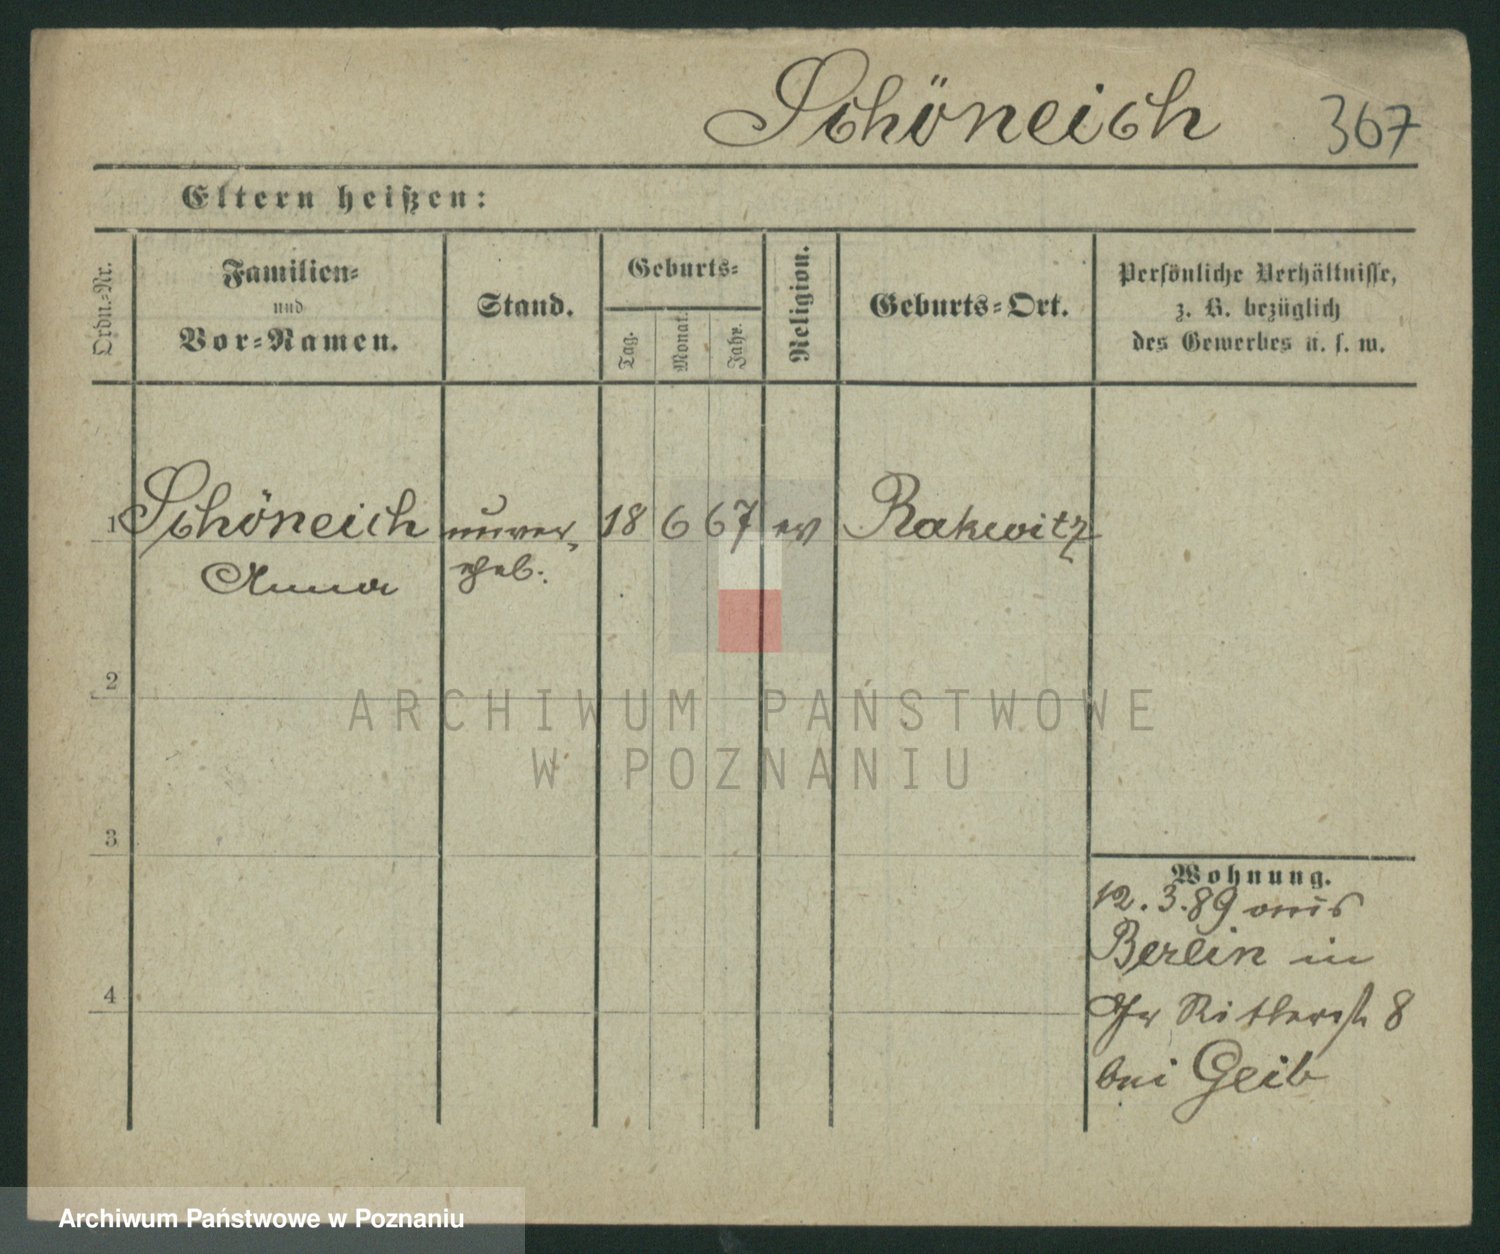 Schöneich 367
Eltern heißen:
Ordn.-Nr.
Familien-
und
Vor-Namen.
Stand.
Geburts-
Tag.
Monat.
Jahr.
Religion.
Geburts-Ort.
Persönliche Verhältnisse,
z. B. bezüglich
des Gewerbes u. s. w.
1 Schöneich unver- 18 6 67 ev Rakwitz
Anna ehel.
2
ARCHIWUM PAŃSTWOWE
W POZNANIU
3
Wohnung.
12.3.89 aus
Berlin in
4
Gr Ritterstr 8
bei Geib
Archiwum Państwowe w Poznaniu